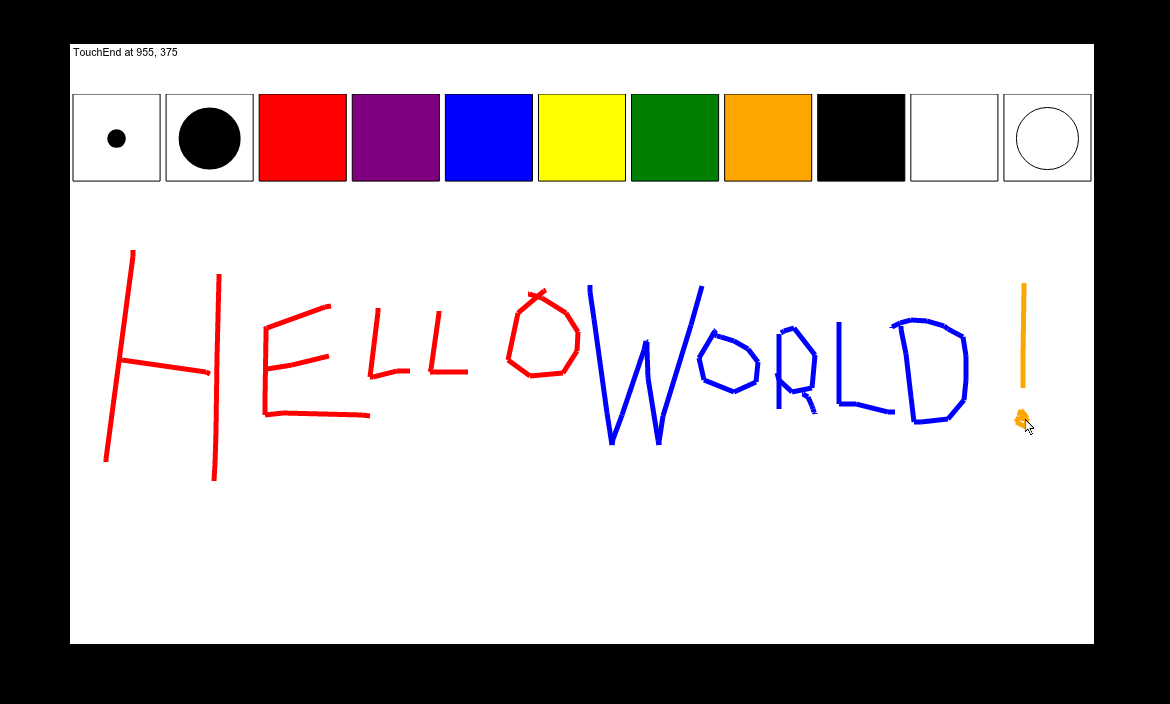 TouchEnd at 955, 375
HELLO WORLD!